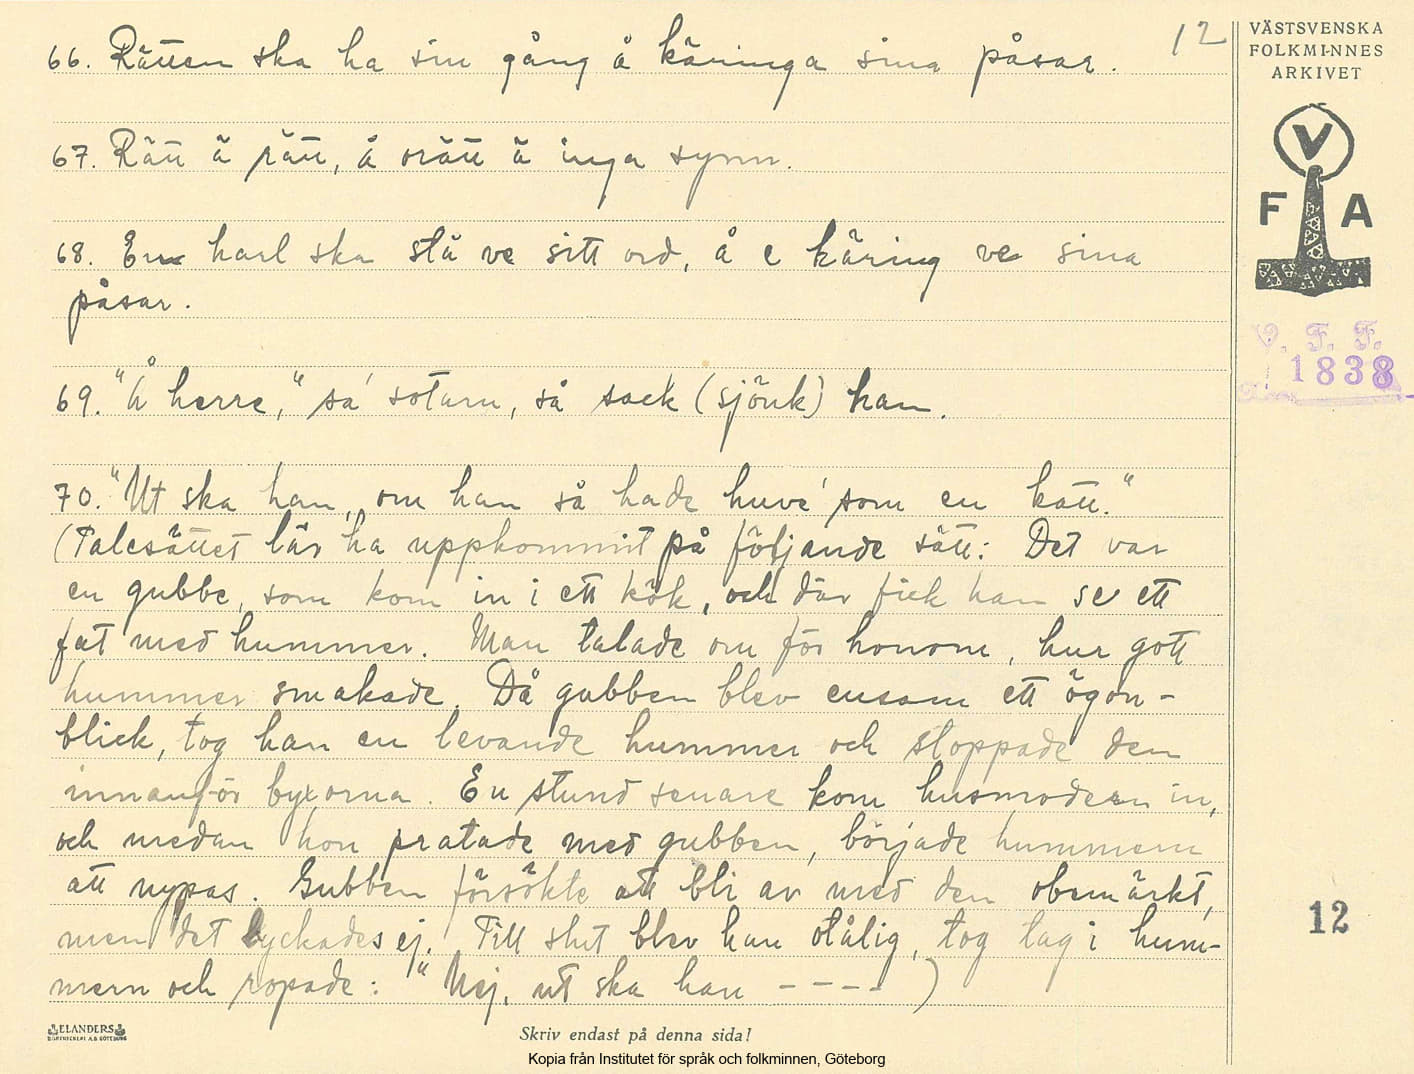 12
VÄSTSVENSKA
FOLKMINNES
ARKIVET
V
F A
V. F. F.
1838
66. Rätten ska ha sin gång å käringa sina påsar.
67. Rätt ä rätt, å orätt ä inga synn.
68. En karl ska stå ve sitt ord, å e käring ve sina
påsar.
69. "Å herre," sa' sotarn, så sack (sjönk) han.
70. "Ut ska han, om han så hade huve' som en katt."
(Talesättet lär ha uppkommit på följande sätt: Det var
en gubbe, som kom in i ett kök, och där fick han se ett
fat med hummer. Man talade om för honom, hur gott
hummer smakade. Då gubben blev ensam ett ögon-
blick, tog han en levande hummer och stoppade den
innanför byxorna. En stund senare kom husmodern in,
och medan hon pratade med gubben, började hummern
att nypas. Gubben försökte att bli av med den obemärkt,
men det lyckades ej. Till slut blev han otålig, tog tag i hum-
mern och ropade: "Nej, ut ska han - - - - )
12
ELANDERS
BOKTRYCKERI A.B. GÖTEBORG
Skriv endast på denna sida!
Kopia från Institutet för språk och folkminnen, Göteborg